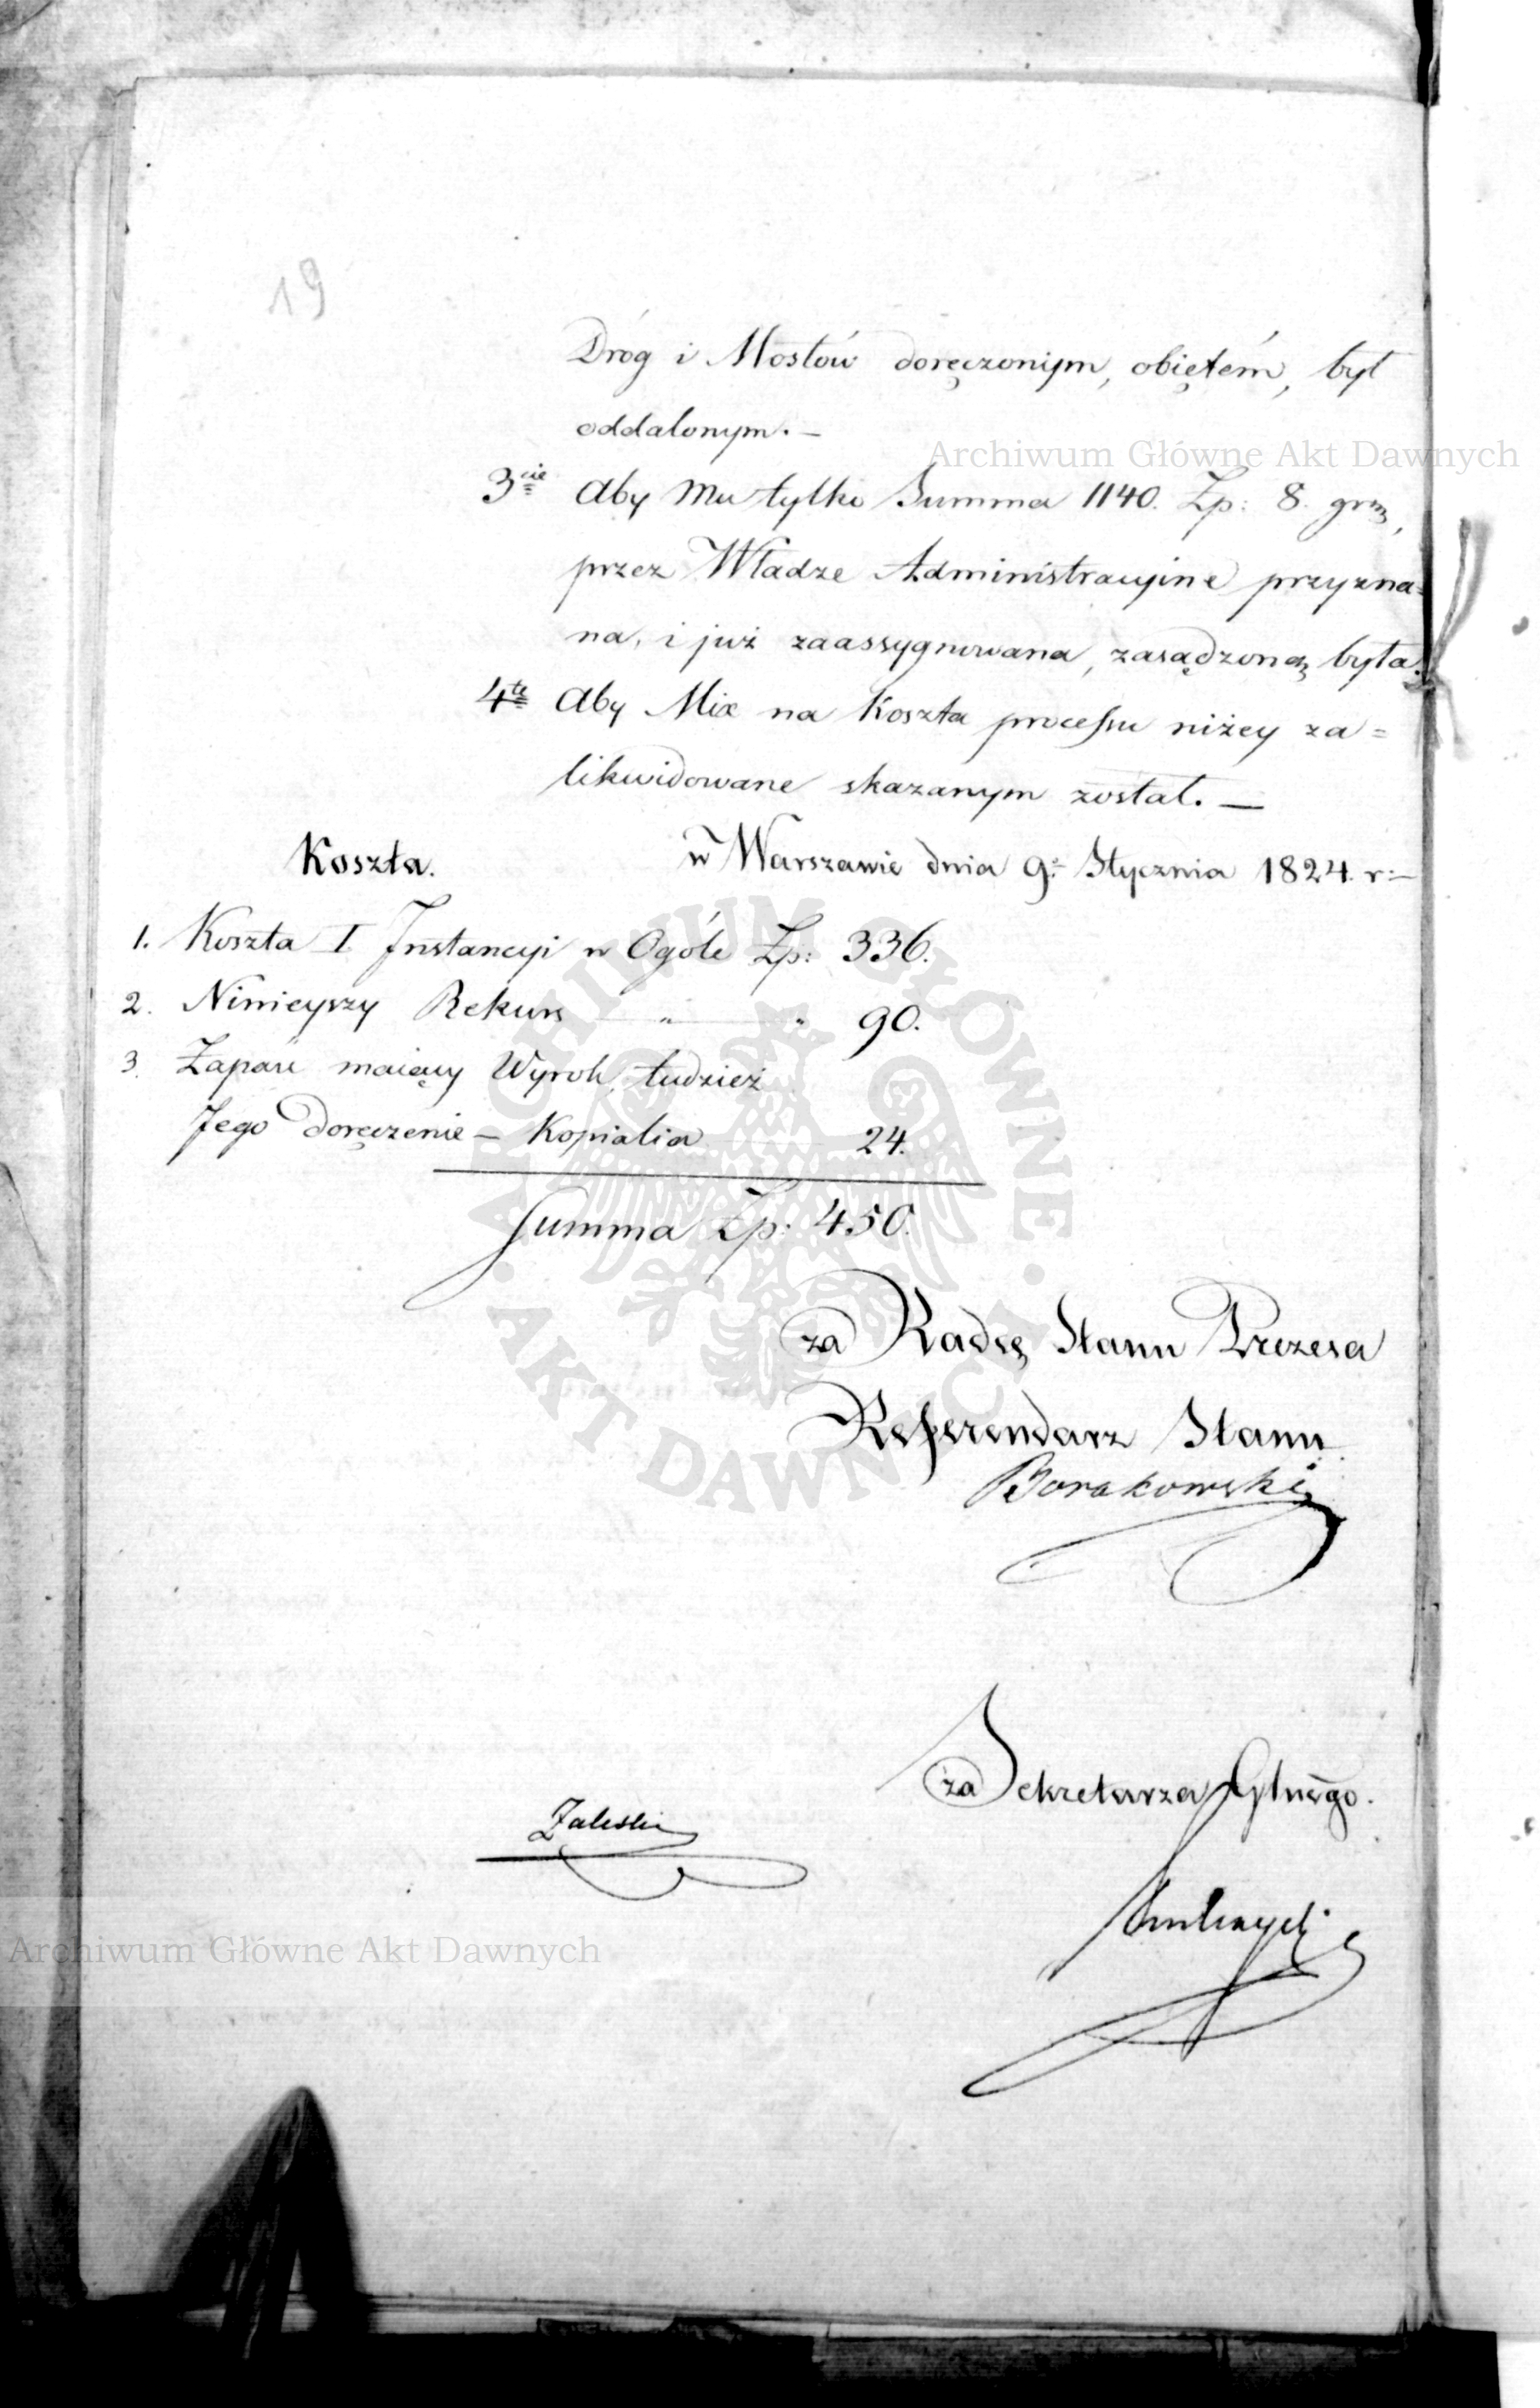 19
Dróg i Mostów doręczonym, obiętém, był
oddalonym. —
3cie Aby Mu tylko Summa 1140. Zp: 8. grz,
przez Władze Administracyine przyzna=
na, i już zaassygnowana, zasądzoną była.
4te Aby Mix na Koszta processu niżey za=
likwidowane skazanym został. —
Koszta. w Warszawie dnia 9. Stycznia 1824. r: —
1. Koszta I Instancyi w Ogóle Zp: 336.
2. Ninieyszy Rekurs — " — " 90.
3. Zapaść maiący Wyrok, tudzież
Jego doręczenie — Kopialia 24.
Summa Zp: 450.
za Radcę Stanu Prezesa
Referendarz Stanu
Borakowski
za Sekretarza Głnego.
Zaleski
Archiwum Główne Akt Dawnych
Archiwum Główne Akt Dawnych
ARCHIWUM GŁÓWNE
AKT DAWNYCH